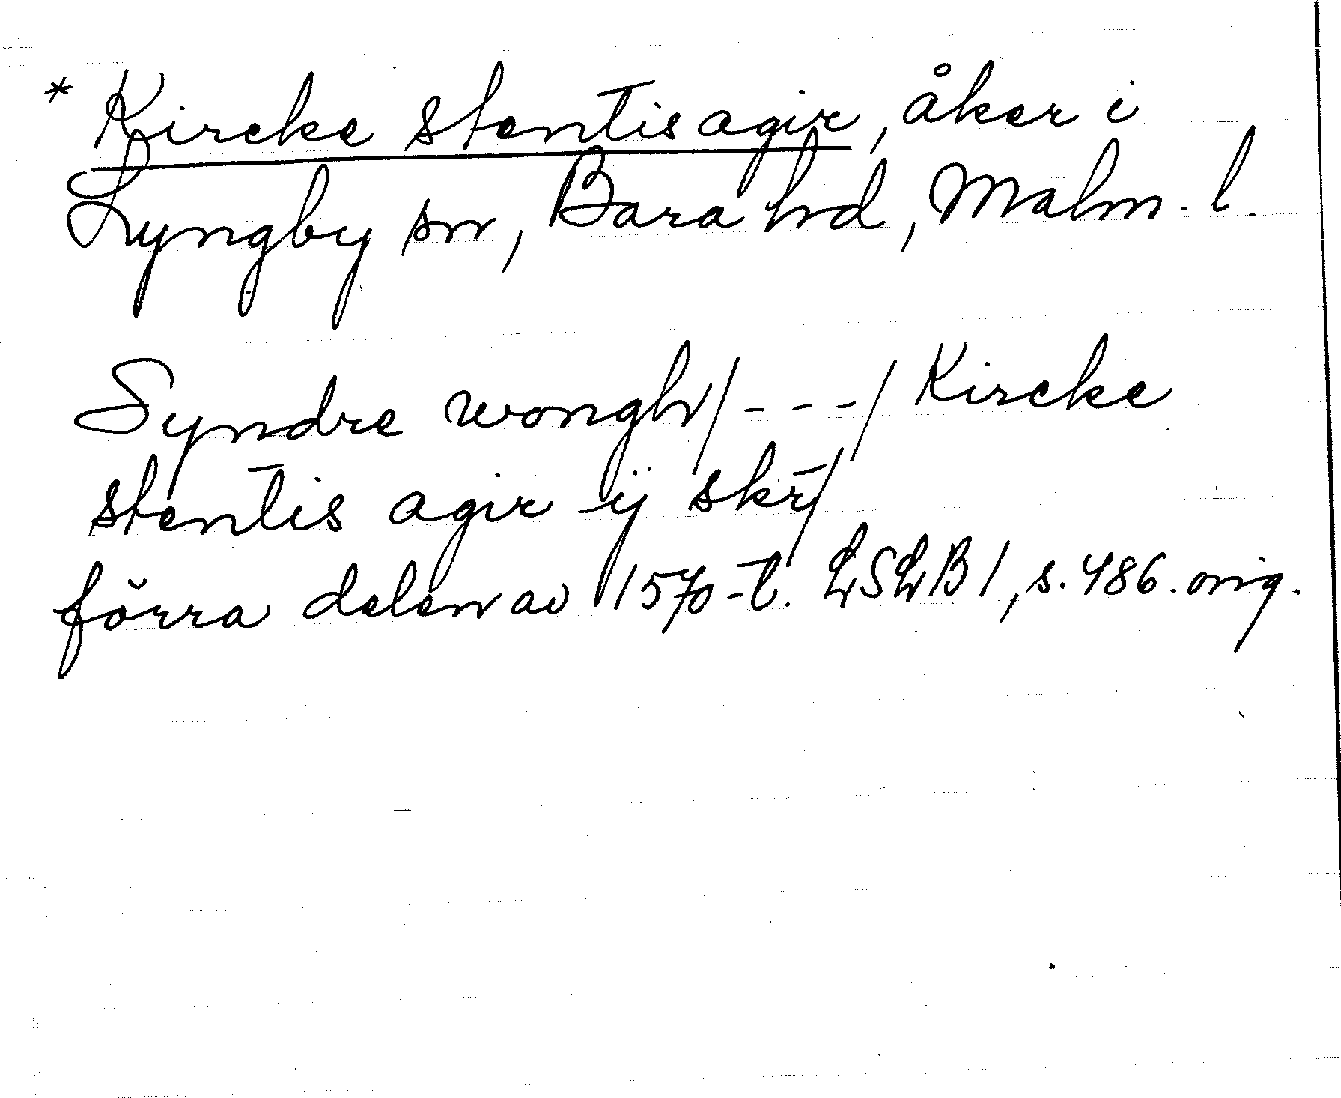 * Kircke stentis agir, åker i
Lyngby sn, Bara hd, Malm. l.
Syndre wongh/ - - - / Kircke
stentis agir ij skr̄/
förra delen av 1570-t. LSLB 1, s. 486. orig.